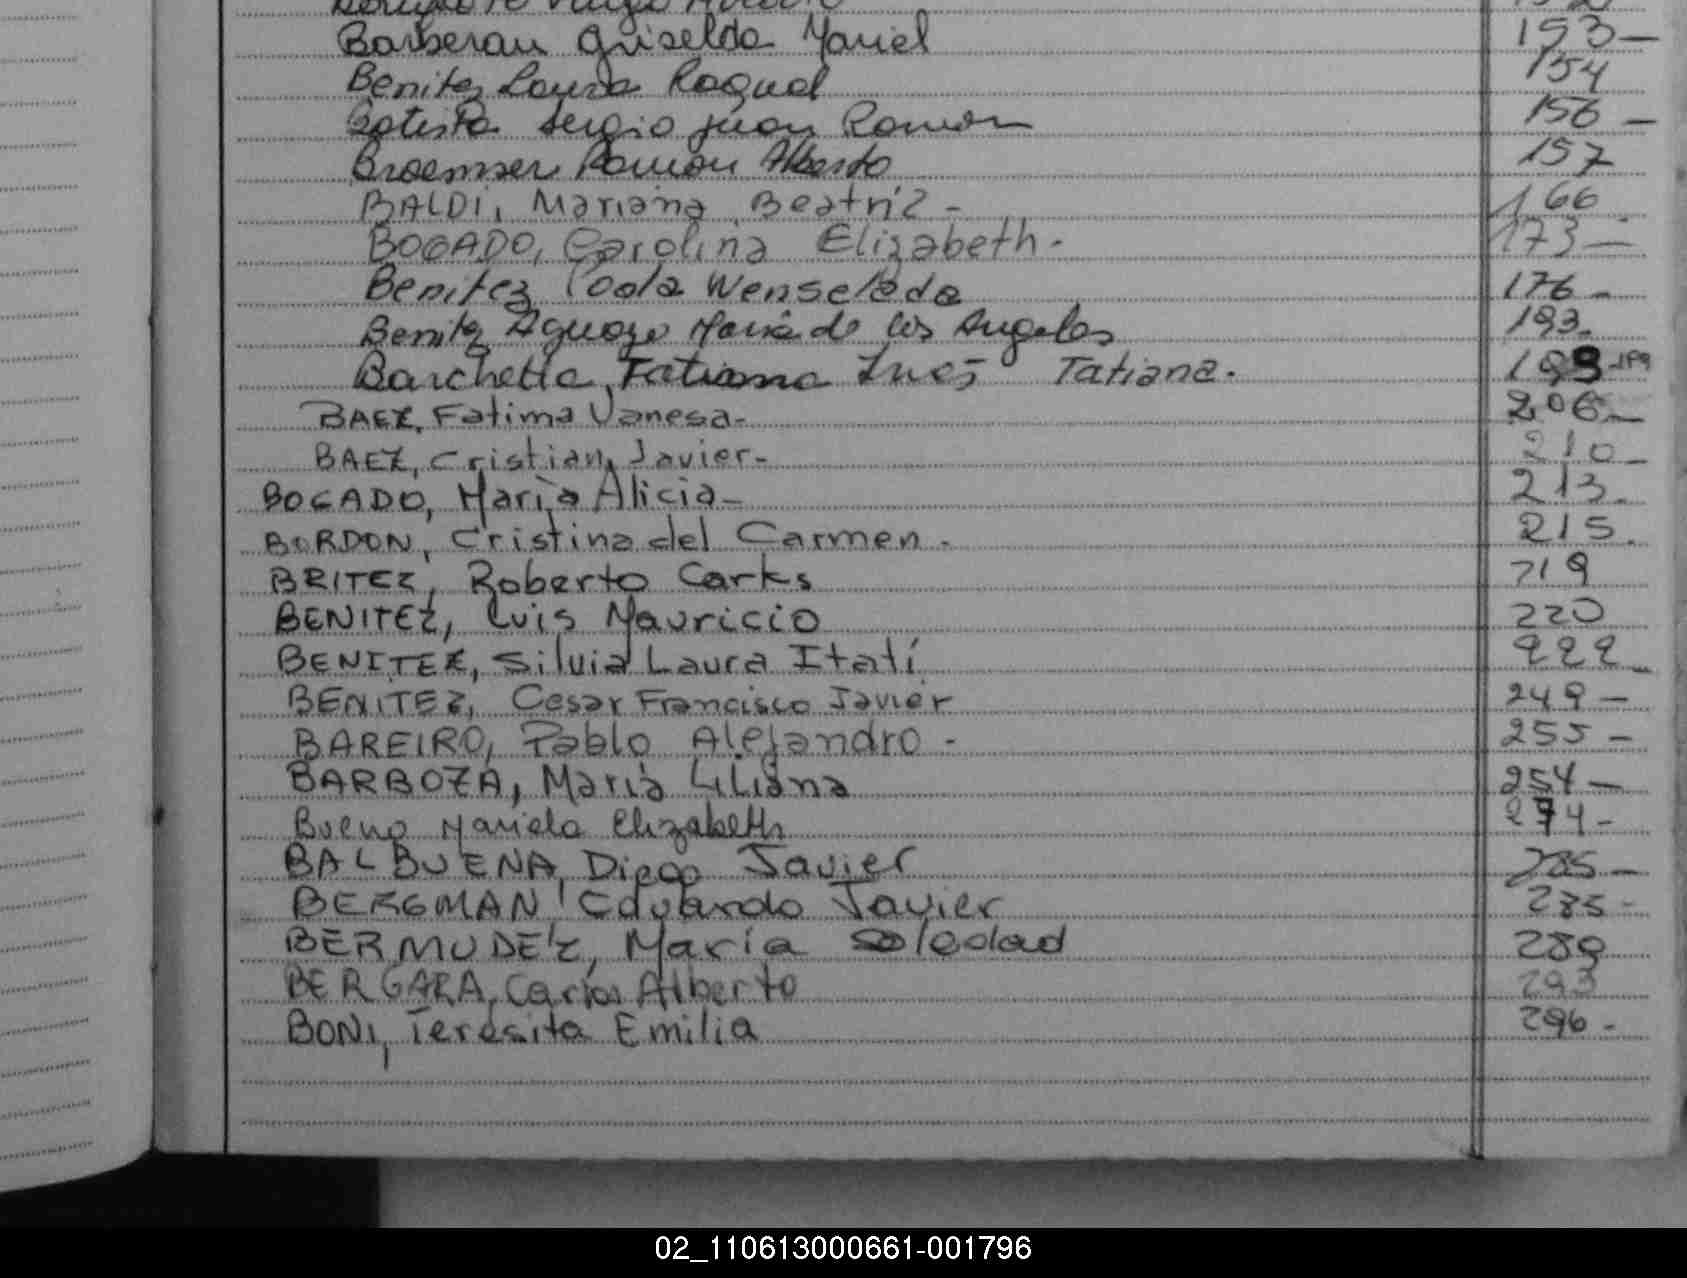 Barberan Griselda Mariel 153-
Benitez Laura Raquel 154
Batista Sergio Juan Ramon 156-
Broemser Ramon Alberto 157
BALDI, Mariana Beatriz - 166-
BOGADO, Carolina Elizabeth. 173-
Benitez Wenselada 176-
Benitez Aguayo Maria de los Angeles 193.
Barchetta, Tatiana Ines Tatiana. 199-199
BAEZ, Fatima Vanesa- 206-
BAEZ, Cristian Javier- 210-
BOGADO, Maria Alicia- 213.
BORDON, Cristina del Carmen. 215.
BRITEZ, Roberto Carlos 219
BENITEZ, Luis Mauricio 220
BENITEZ, Silvia Laura Itatí 222-
BENITEZ, Cesar Francisco Javier 249-
BAREIRO, Pablo Alejandro - 255-
BARBOZA, Maria Liliana 254-
Bueno Mariela Elizabeth 274-
BALBUENA, Diego Javier 285-
BERGMAN, Eduardo Javier 285-
BERMUDEZ, María Soledad 289
BERGARA, Carlos Alberto 293
BONI, Teresita Emilia 296-
02_110613000661-001796